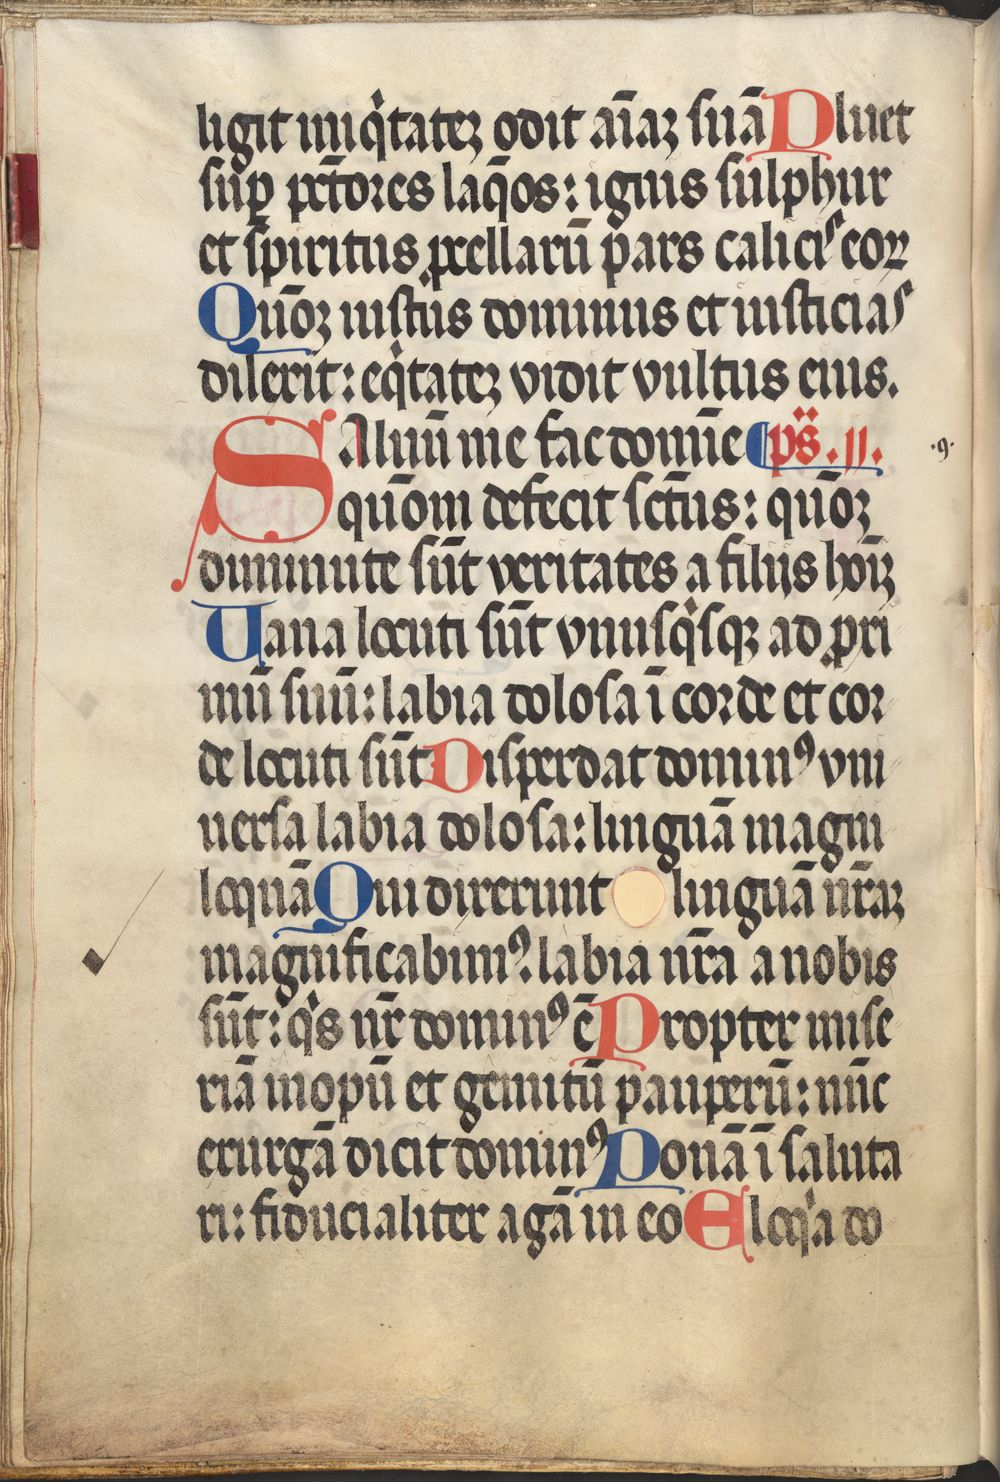 ligit iniq̇tateꝫ odit aīaꝫ suā Pluet
suꝑ pctōres laq̄os: ignis sulphur
et sp̄iritus ꝓcellarū pars calicis eoꝝ
Quōꝫ iustus dominus et iusticias
dilexit: eq̇tateꝫ vidit vultus eius.
SAluū me fac domīe ps̄. 11.
quōm defecit sctūs: quōꝫ
diminute sūt veritates a filijs hoīꝫ
Uana locuti sūt vnusq̇sqꝫ ad ꝓxi
mū suū: labia dolosa ī corde et cor
de locuti sūt Disperdat dominꝰ vni
uersa labia dolosa: linguā magni
loquā Qui dixerunt linguā nr̄aꝫ
magnificabimꝰ. labia nr̄a a nobis
sūt: q̇s nr̄ dominꝰ ē Propter mise
riā inopū et gemitū pauperū: nūc
exurgā dicit dominꝰ Ponā ī saluta
ri: fiducialiter agā in eo Eloq̇a do
·9·